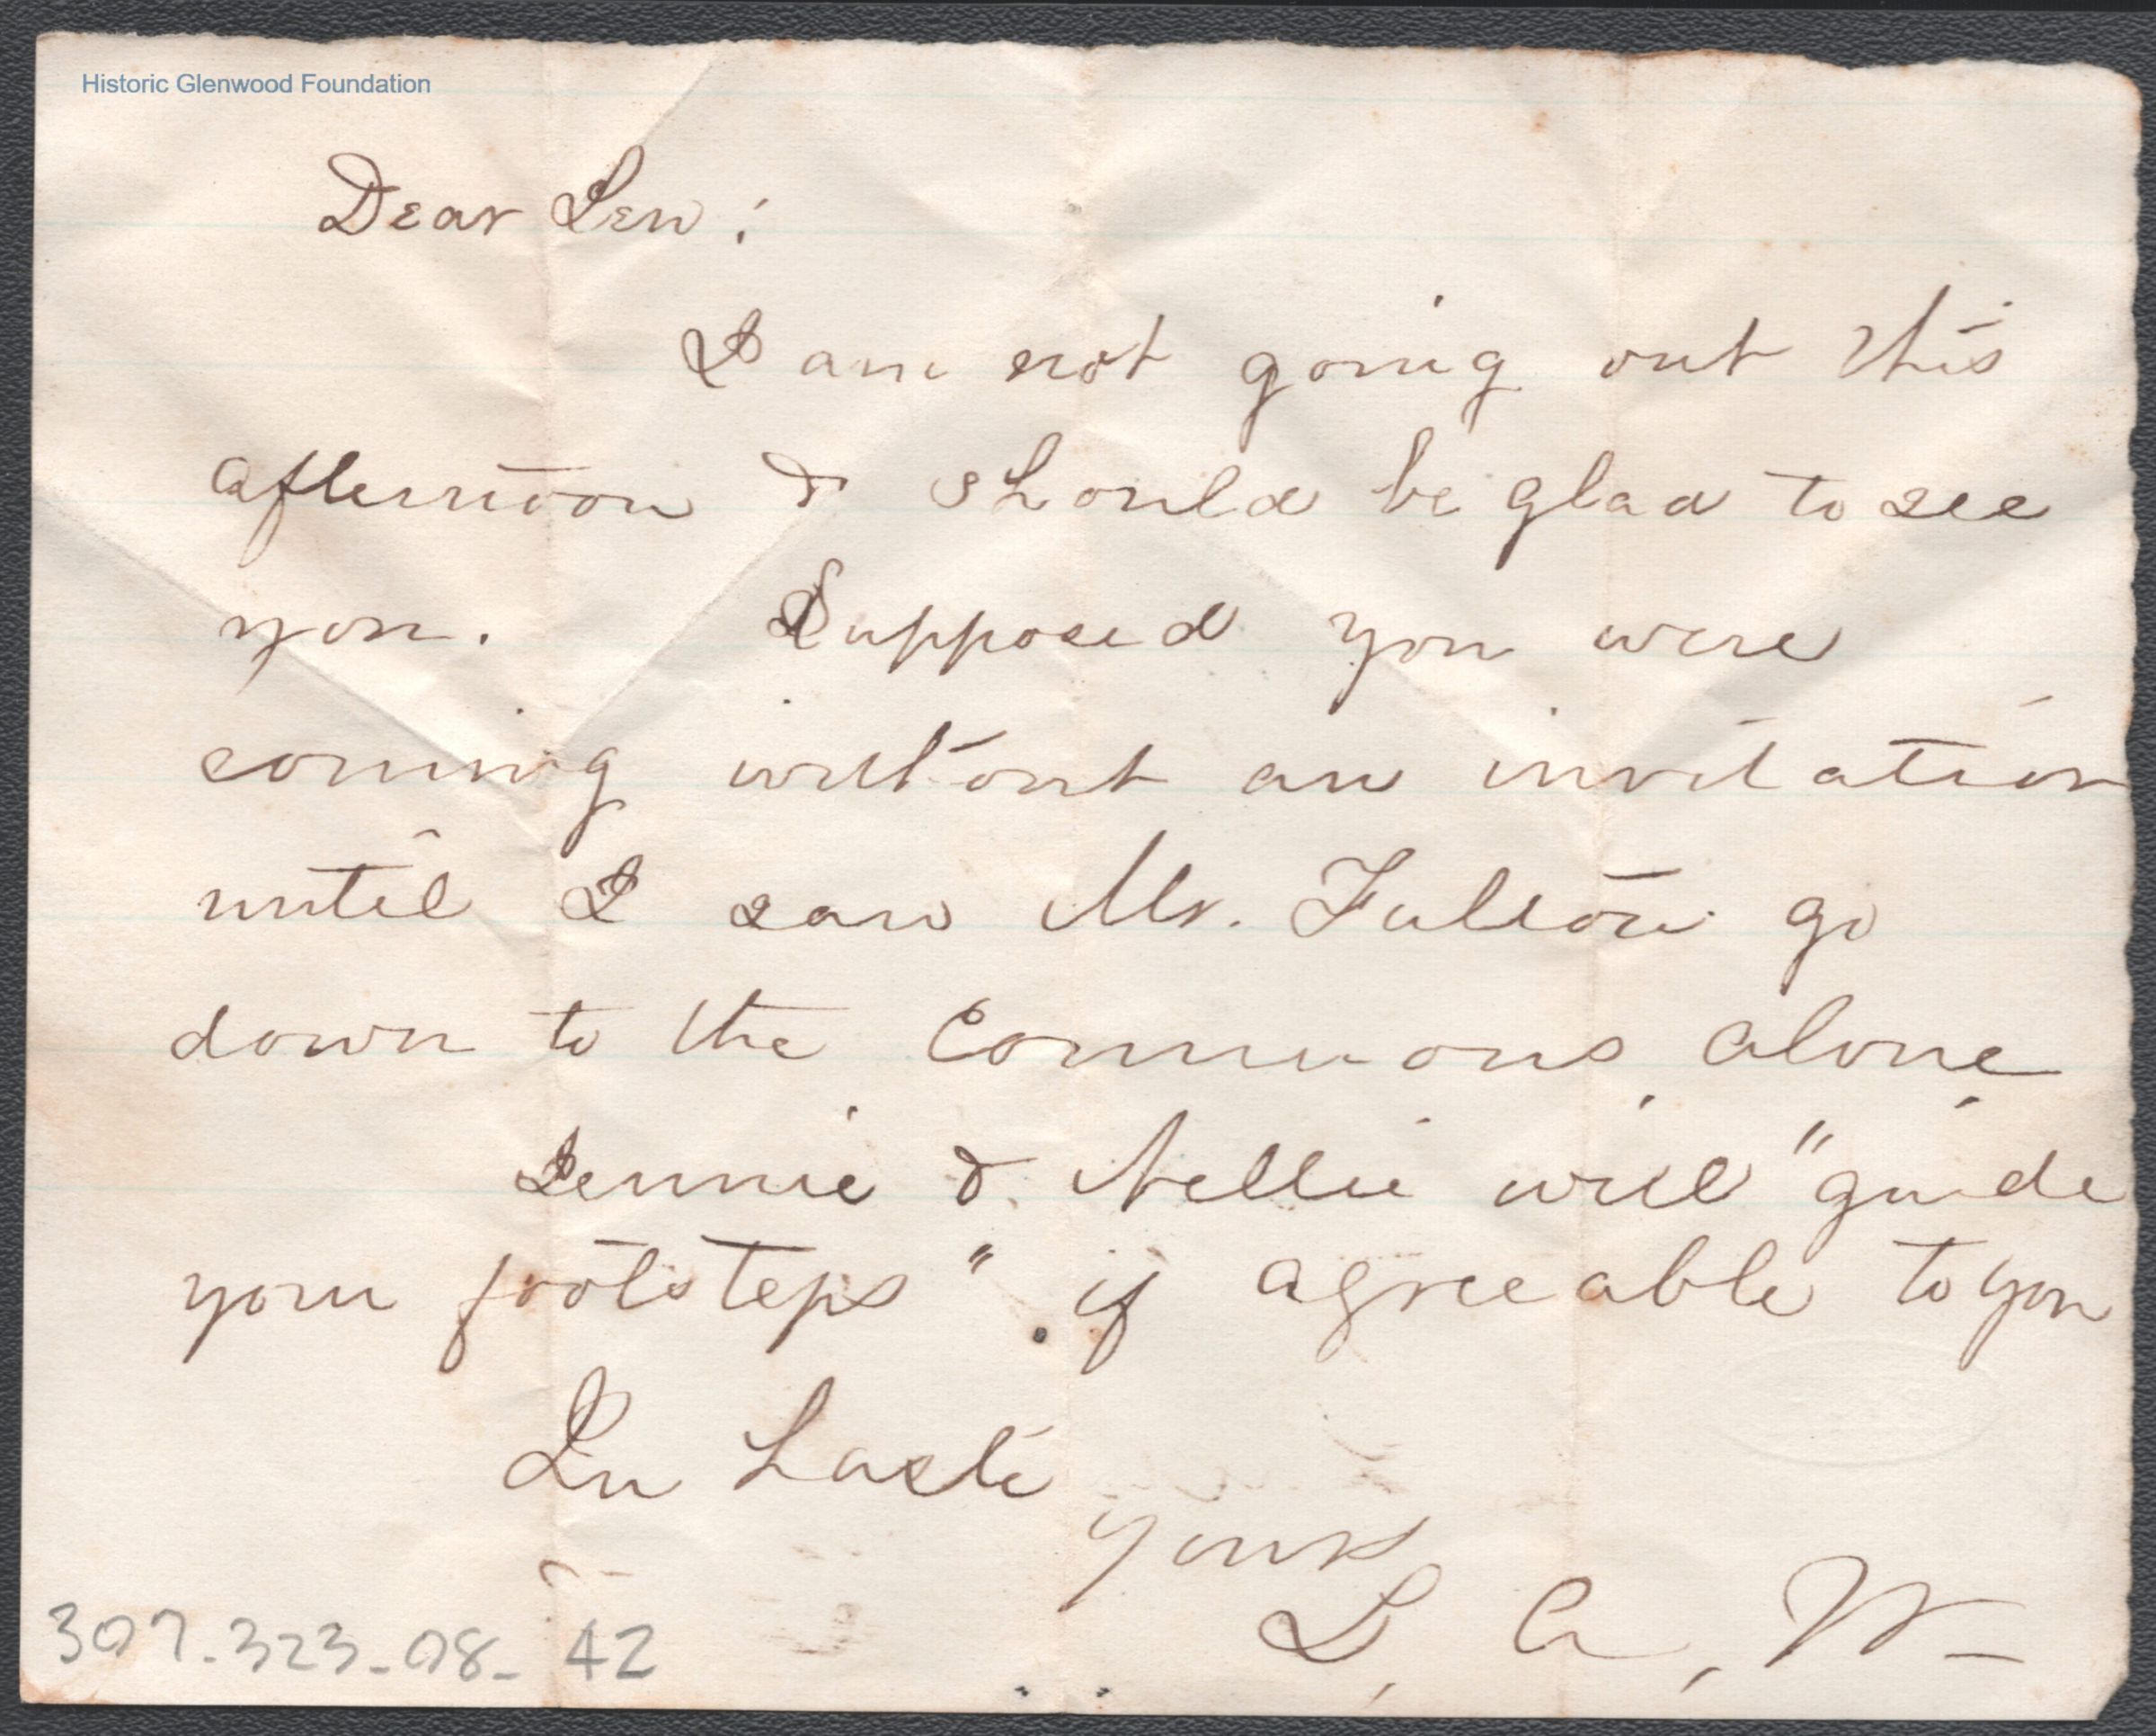 Historic Glenwood Foundation
Dear Len :
I am not going out this
afternoon & should be glad to see
you. Supposed you were
coming without an invitation
until I saw Mr. Fulton go
down to the Commons alone
Jennie & Nellie will "guide
your footsteps" if agreeable to you
In haste
Yours
L, A, W-
307.323-08-42